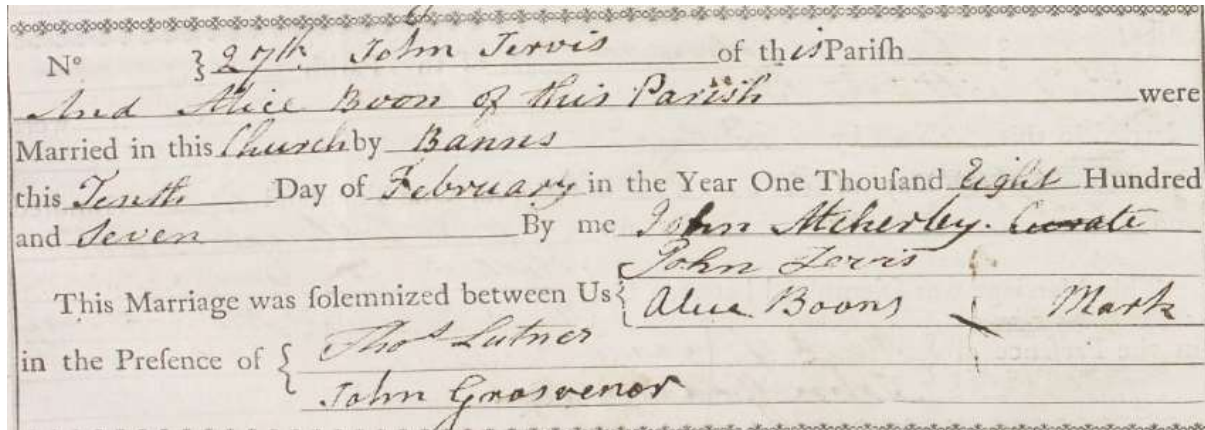 N° } 27th John Jervis of this Pariſh
And Alice Boon of this Parish were
Married in this Church by Banns
this Tenth Day of February in the Year One Thouſand Eight Hundred
and Seven By me John Atcherley. Curate
This Marriage was ſolemnized between Us { John Jervis
Alice Boons X Mark
in the Preſence of { Thos Lutner
John Grosvenor